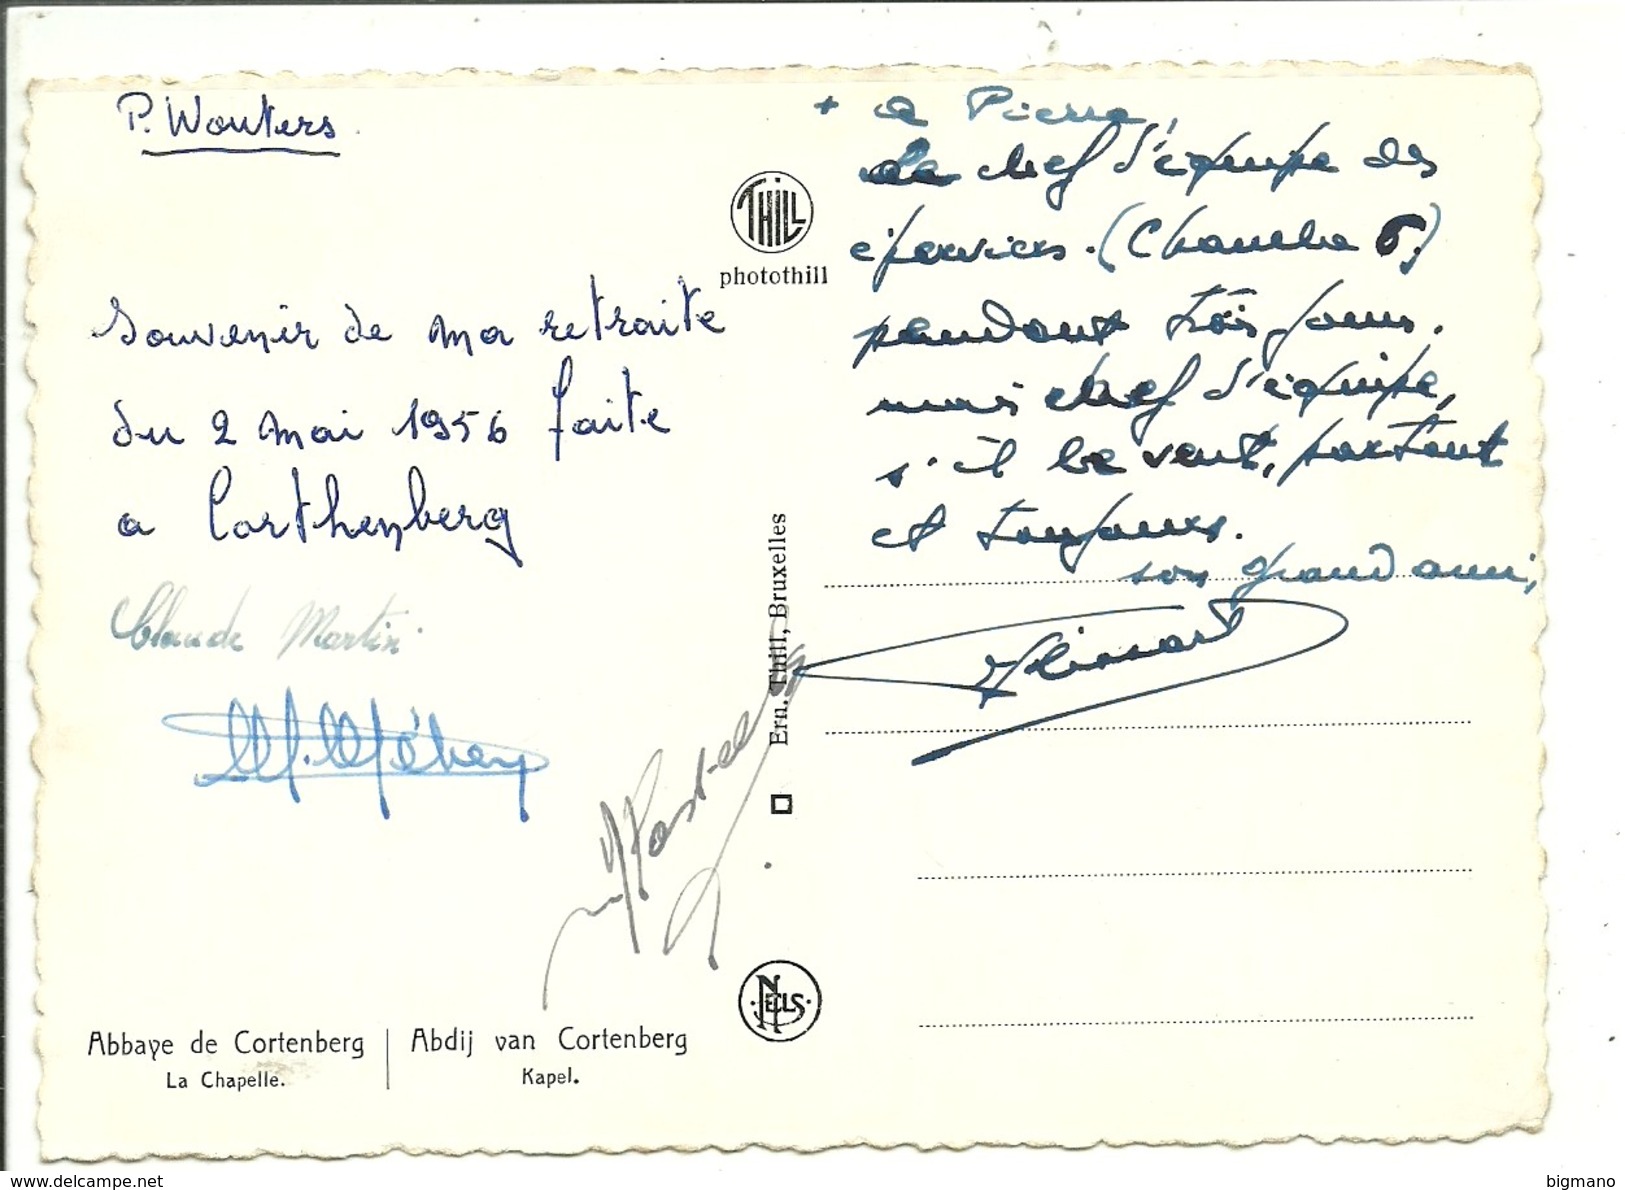 P. Wouters
Souvenir de ma retraite
du 2 mai 1956 faite
a Corthenberg
Claude Martin
+ a Pierre,
chef d'équipe des
éperviers. (Chambre 6)
pendant trois jours.
mais chef d'équipe,
s'il le veut, partout
et toujours.
son grand ami,
THILL
photothill
Ern. Thill, Bruxelles
NELS
Abbaye de Cortenberg
La Chapelle.
Abdij van Cortenberg
Kapel.
delcampe.net
bigmano